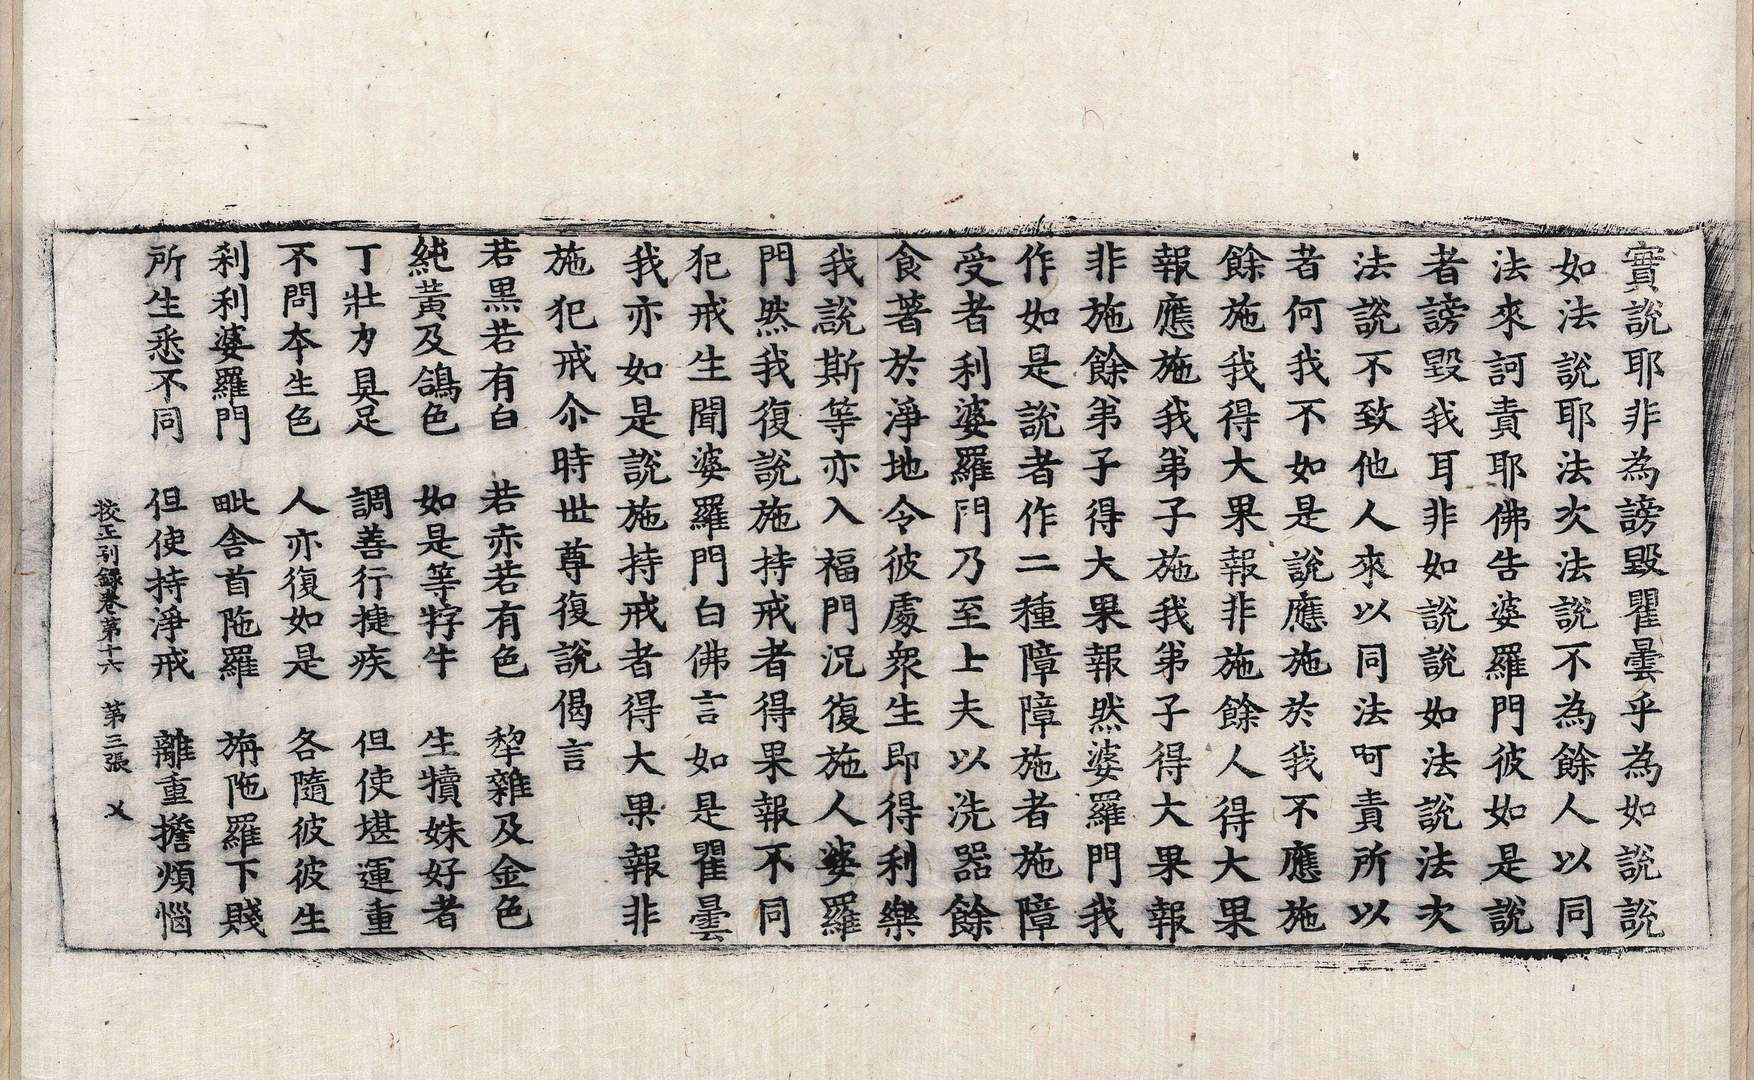 實說耶非為謗毀瞿曇乎為如說說
如法說耶法次法說不為餘人以同
法來訶責耶佛告婆羅門彼如是說
者謗毀我耳非如說說如法說法次
法說不致他人來以同法呵責所以
者何我不如是說應施於我不應施
餘施我得大果報非施餘人得大果
報應施我弟子施我弟子得大果報
非施餘弟子得大果報然婆羅門我
作如是說者作二種障障施者施障
受者利婆羅門乃至上夫以洗器餘
食著於淨地令彼處眾生即得利樂
我說斯等亦入福門況復施人婆羅
門然我復說施持戒者得果報不同
犯戒生聞婆羅門白佛言如是瞿曇
我亦如是說施持戒者得大果報非
施犯戒尒時世尊復說偈言
若黑若有白　若赤若有色　犂雜及金色
純黃及鴿色　如是等牸牛　生犢姝好者
丁壯力具足　調善行捷疾　但使堪運重
不問本生色　人亦復如是　各隨彼彼生
剎利婆羅門　毗舍首陁羅　旃陁羅下賤
所生悉不同　但使持淨戒　離重擔煩惱
校正別錄卷第十六　第三張　㐅